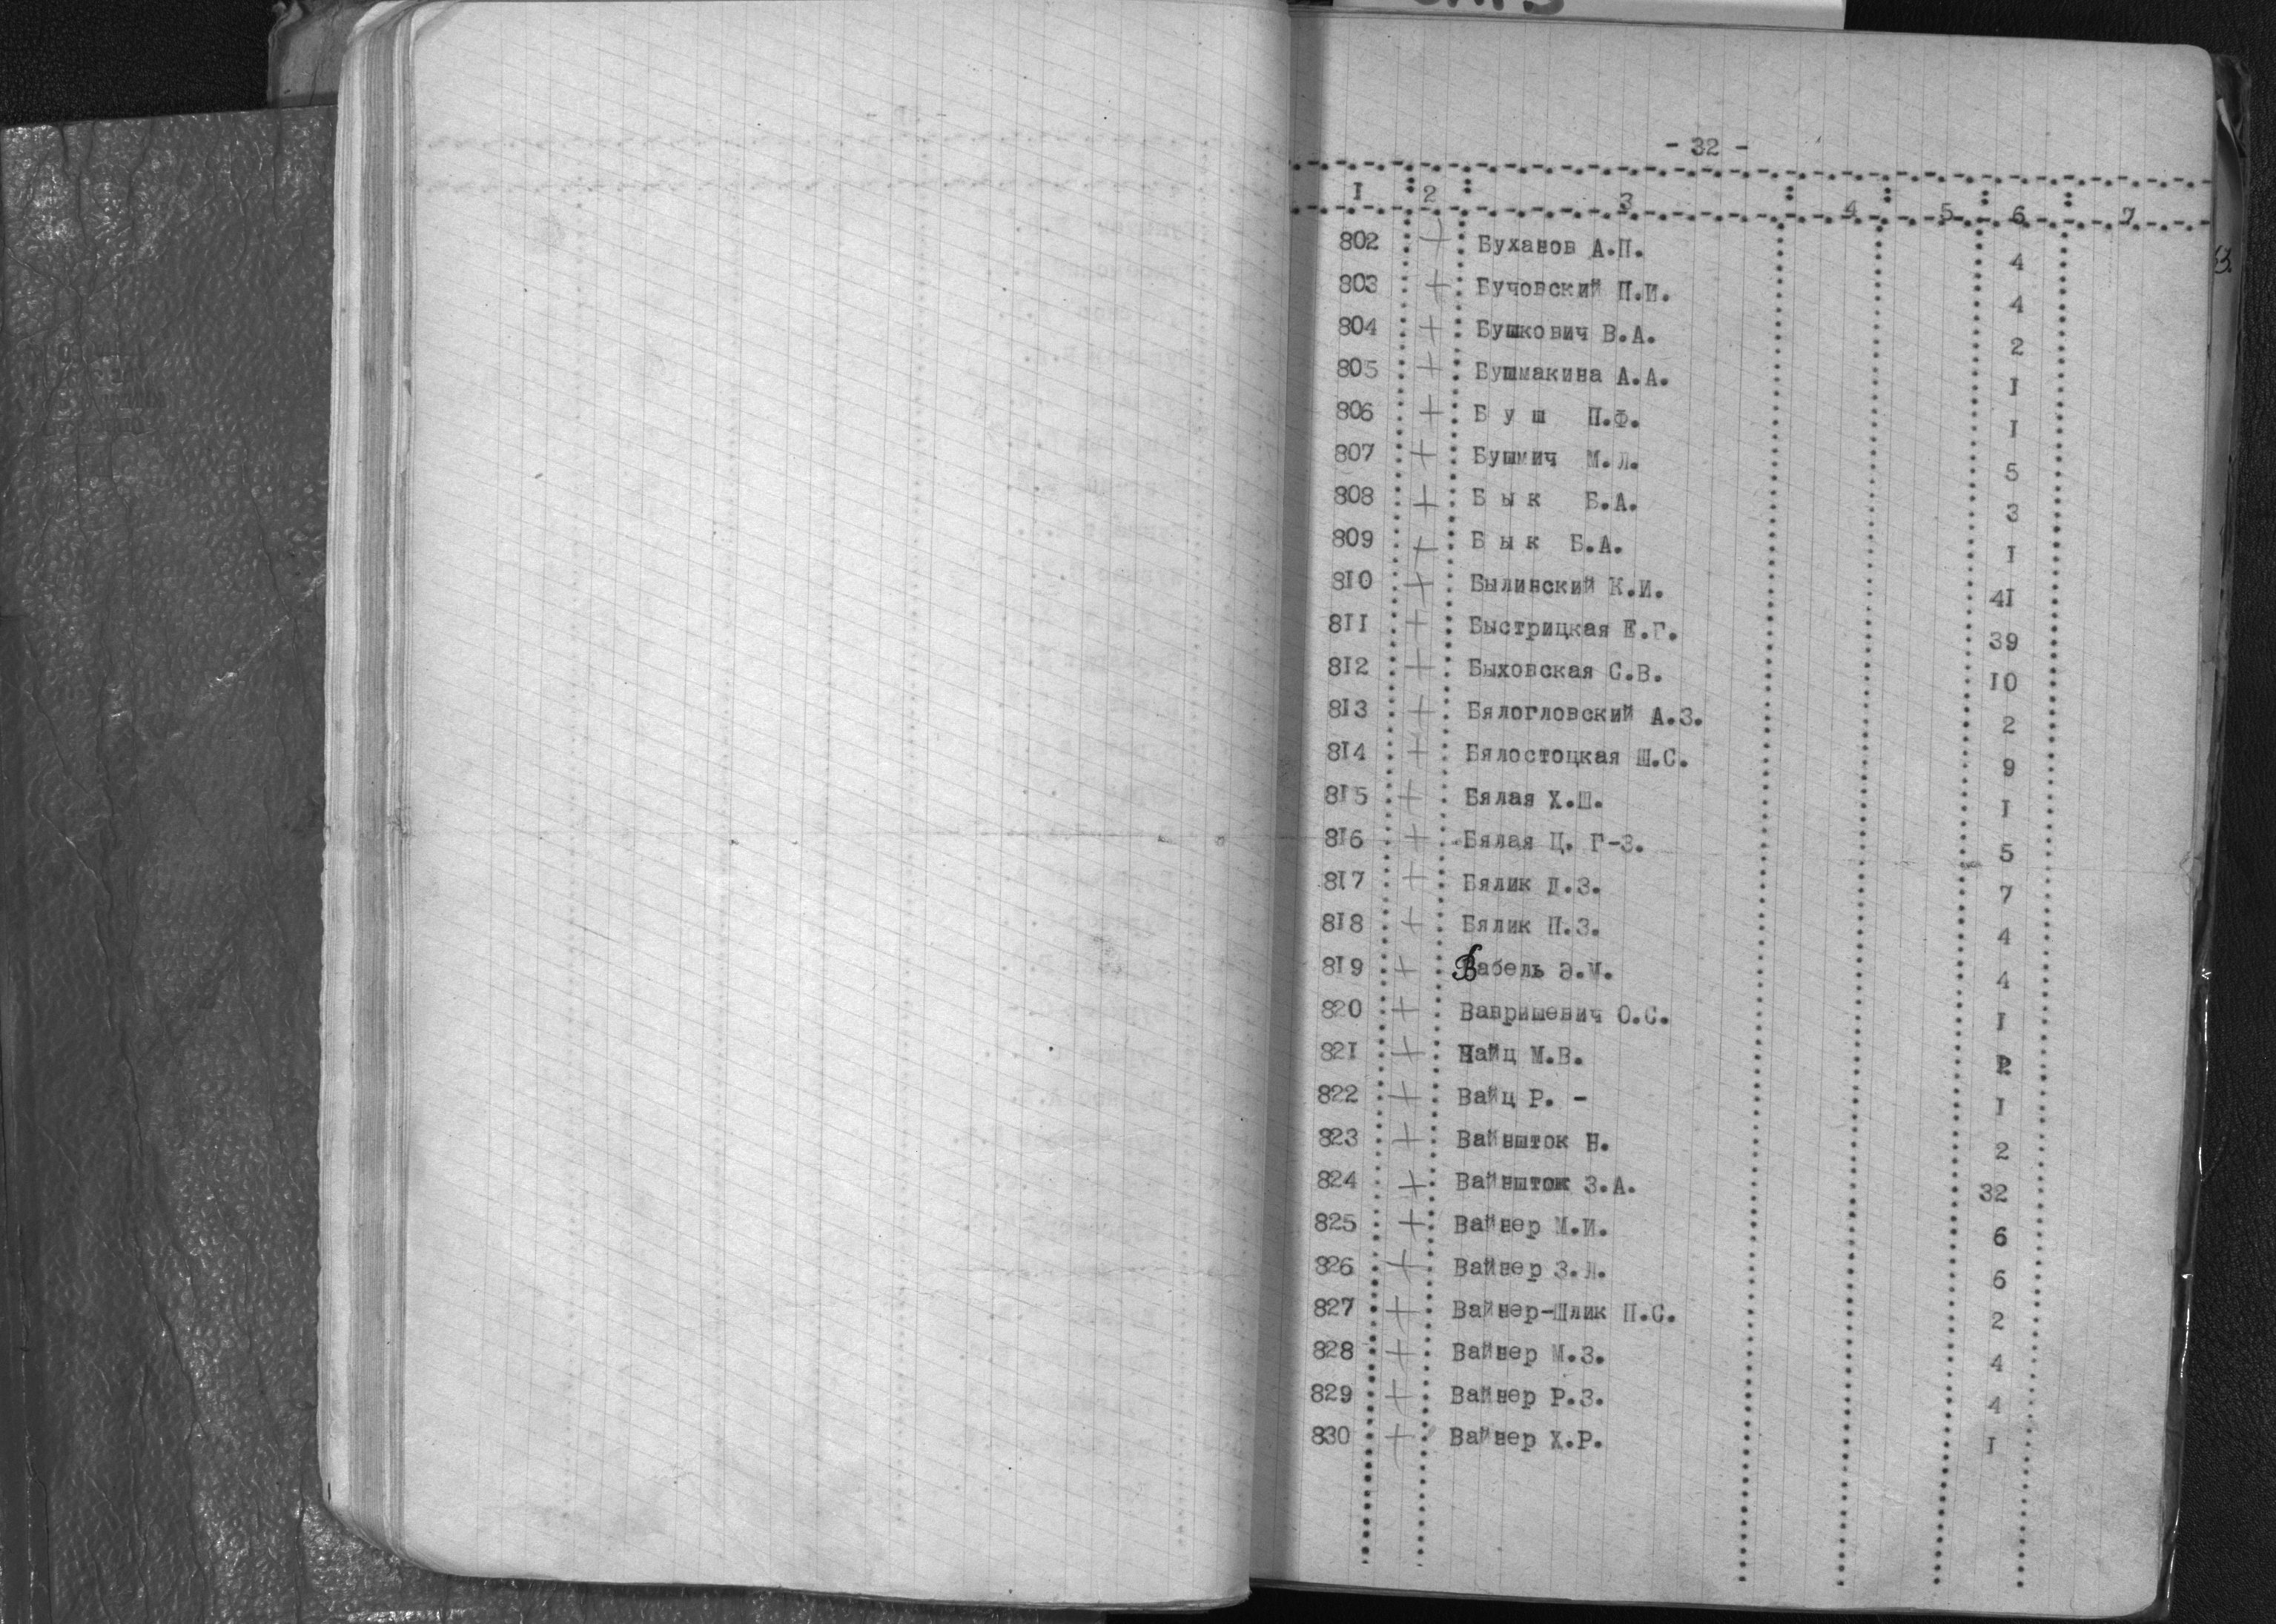 - 32 -
I 2 3 4 5 6 7
802 + Буханов А.П. 4
803 + Бучовский П.И. 4
804 + Бушкович В.А. 2
805 + Бушмакина А.А. I
806 + Б у ш П.Ф. I
807 + Бушмич М.Л. 5
808 + Б ы к Б.А. 3
809 + Б ы к Б.А. I
8I0 + Былинский К.И. 4I
8II + Быстрицкая Е.Г. 39
8I2 + Быховская С.В. I0
8I3 + Бялогловский А.З. 2
8I4 + Бялостоцкая Ш.С. 9
8I5 + Бялая Х.Ш. I
8I6 + Бялая Ц. Г-З. 5
8I7 + Бялик Д.З. 7
8I8 + Бялик П.З. 4
8I9 + Вабель Э.М. 4
820 + Вавришевич О.С. I
82I + Найц М.В.
822 + Вайц Р. - I
823 + Вайншток Н. 2
824 + Вайншток З.А. 32
825 + Вайнер М.И. 6
826 + Вайнер З.Л. 6
827 + Вайнер-Шлик П.С. 2
828 + Вайнер М.З. 4
829 + Вайнер Р.З. 4
830 + Вайнер Х.Р. I